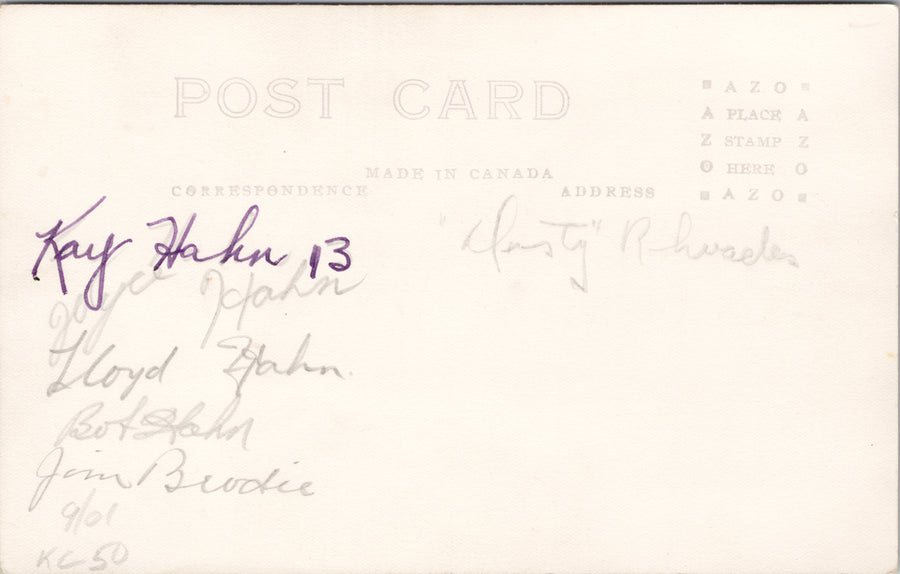 POST CARD
MADE IN CANADA
CORRESPONDENCE
ADDRESS
AZO
A PLACE A
Z STAMP Z
O HERE O
AZO
Kay Hahn 13
Joyce Hahn
Lloyd Hahn.
Bob Hahn
Jim Brodie
9/01
KC 50
"Dusty" Rhoades